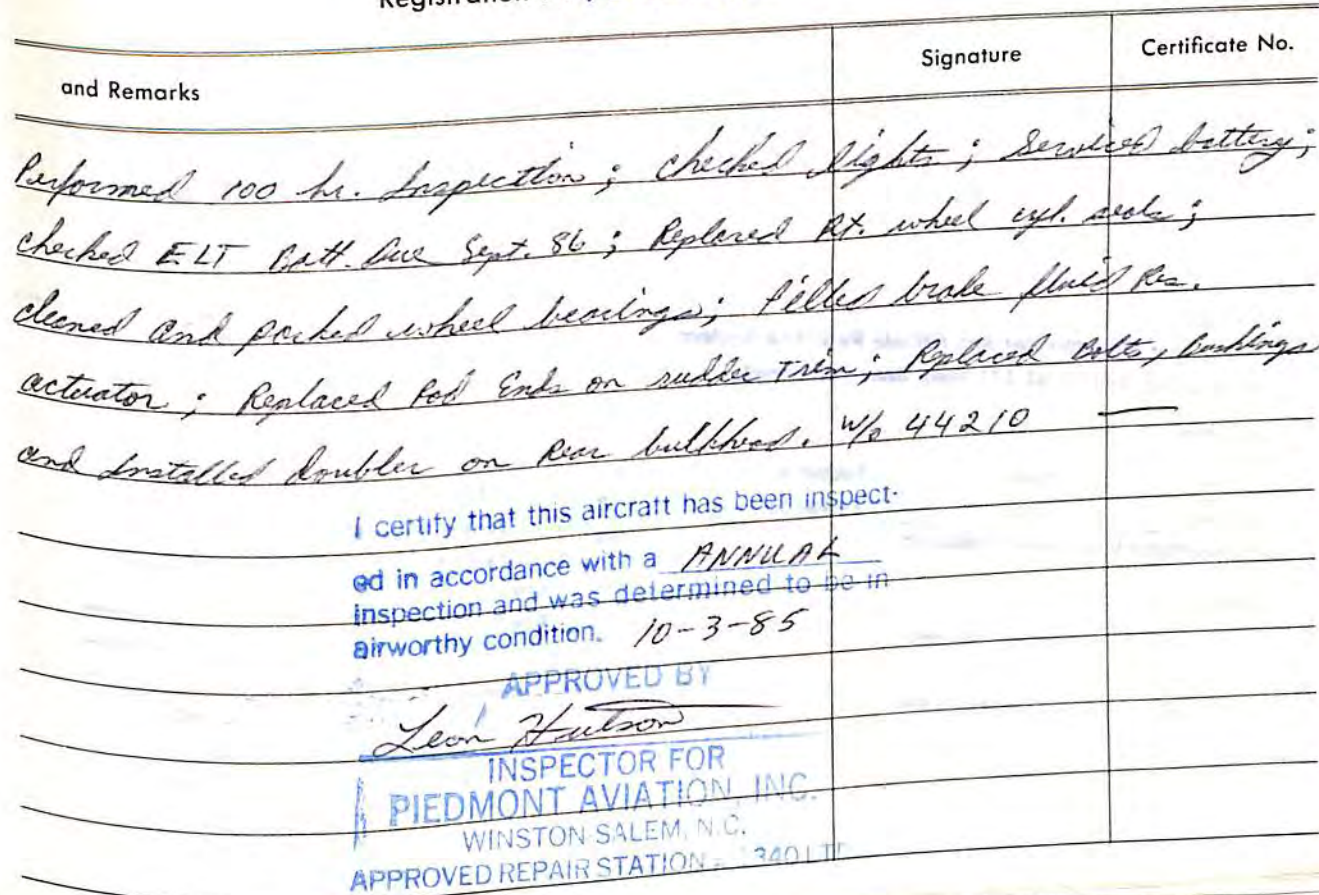 Registration
and Remarks
Signature
Certificate No.
Performed 100 hr. Inspection ; checked lights ; Serviced battery ;
checked ELT Batt. Due Sept. 86 ; Replaced Rt. wheel cyl. seals ;
cleaned and packed wheel bearings ; filled brake fluid Res.
actuator ; Replaced Rod Ends on rudder Trim ; Replaced Bolts, Bushings
and Installed doubler on Rear bulkhead. W/o 44210 —
I certify that this aircraft has been inspect-
ed in accordance with a ANNUAL
inspection and was determined to be in
airworthy condition. 10-3-85
APPROVED BY
Leon Hutson
INSPECTOR FOR
PIEDMONT AVIATION, INC.
WINSTON-SALEM, N.C.
APPROVED REPAIR STATION 340 LTD